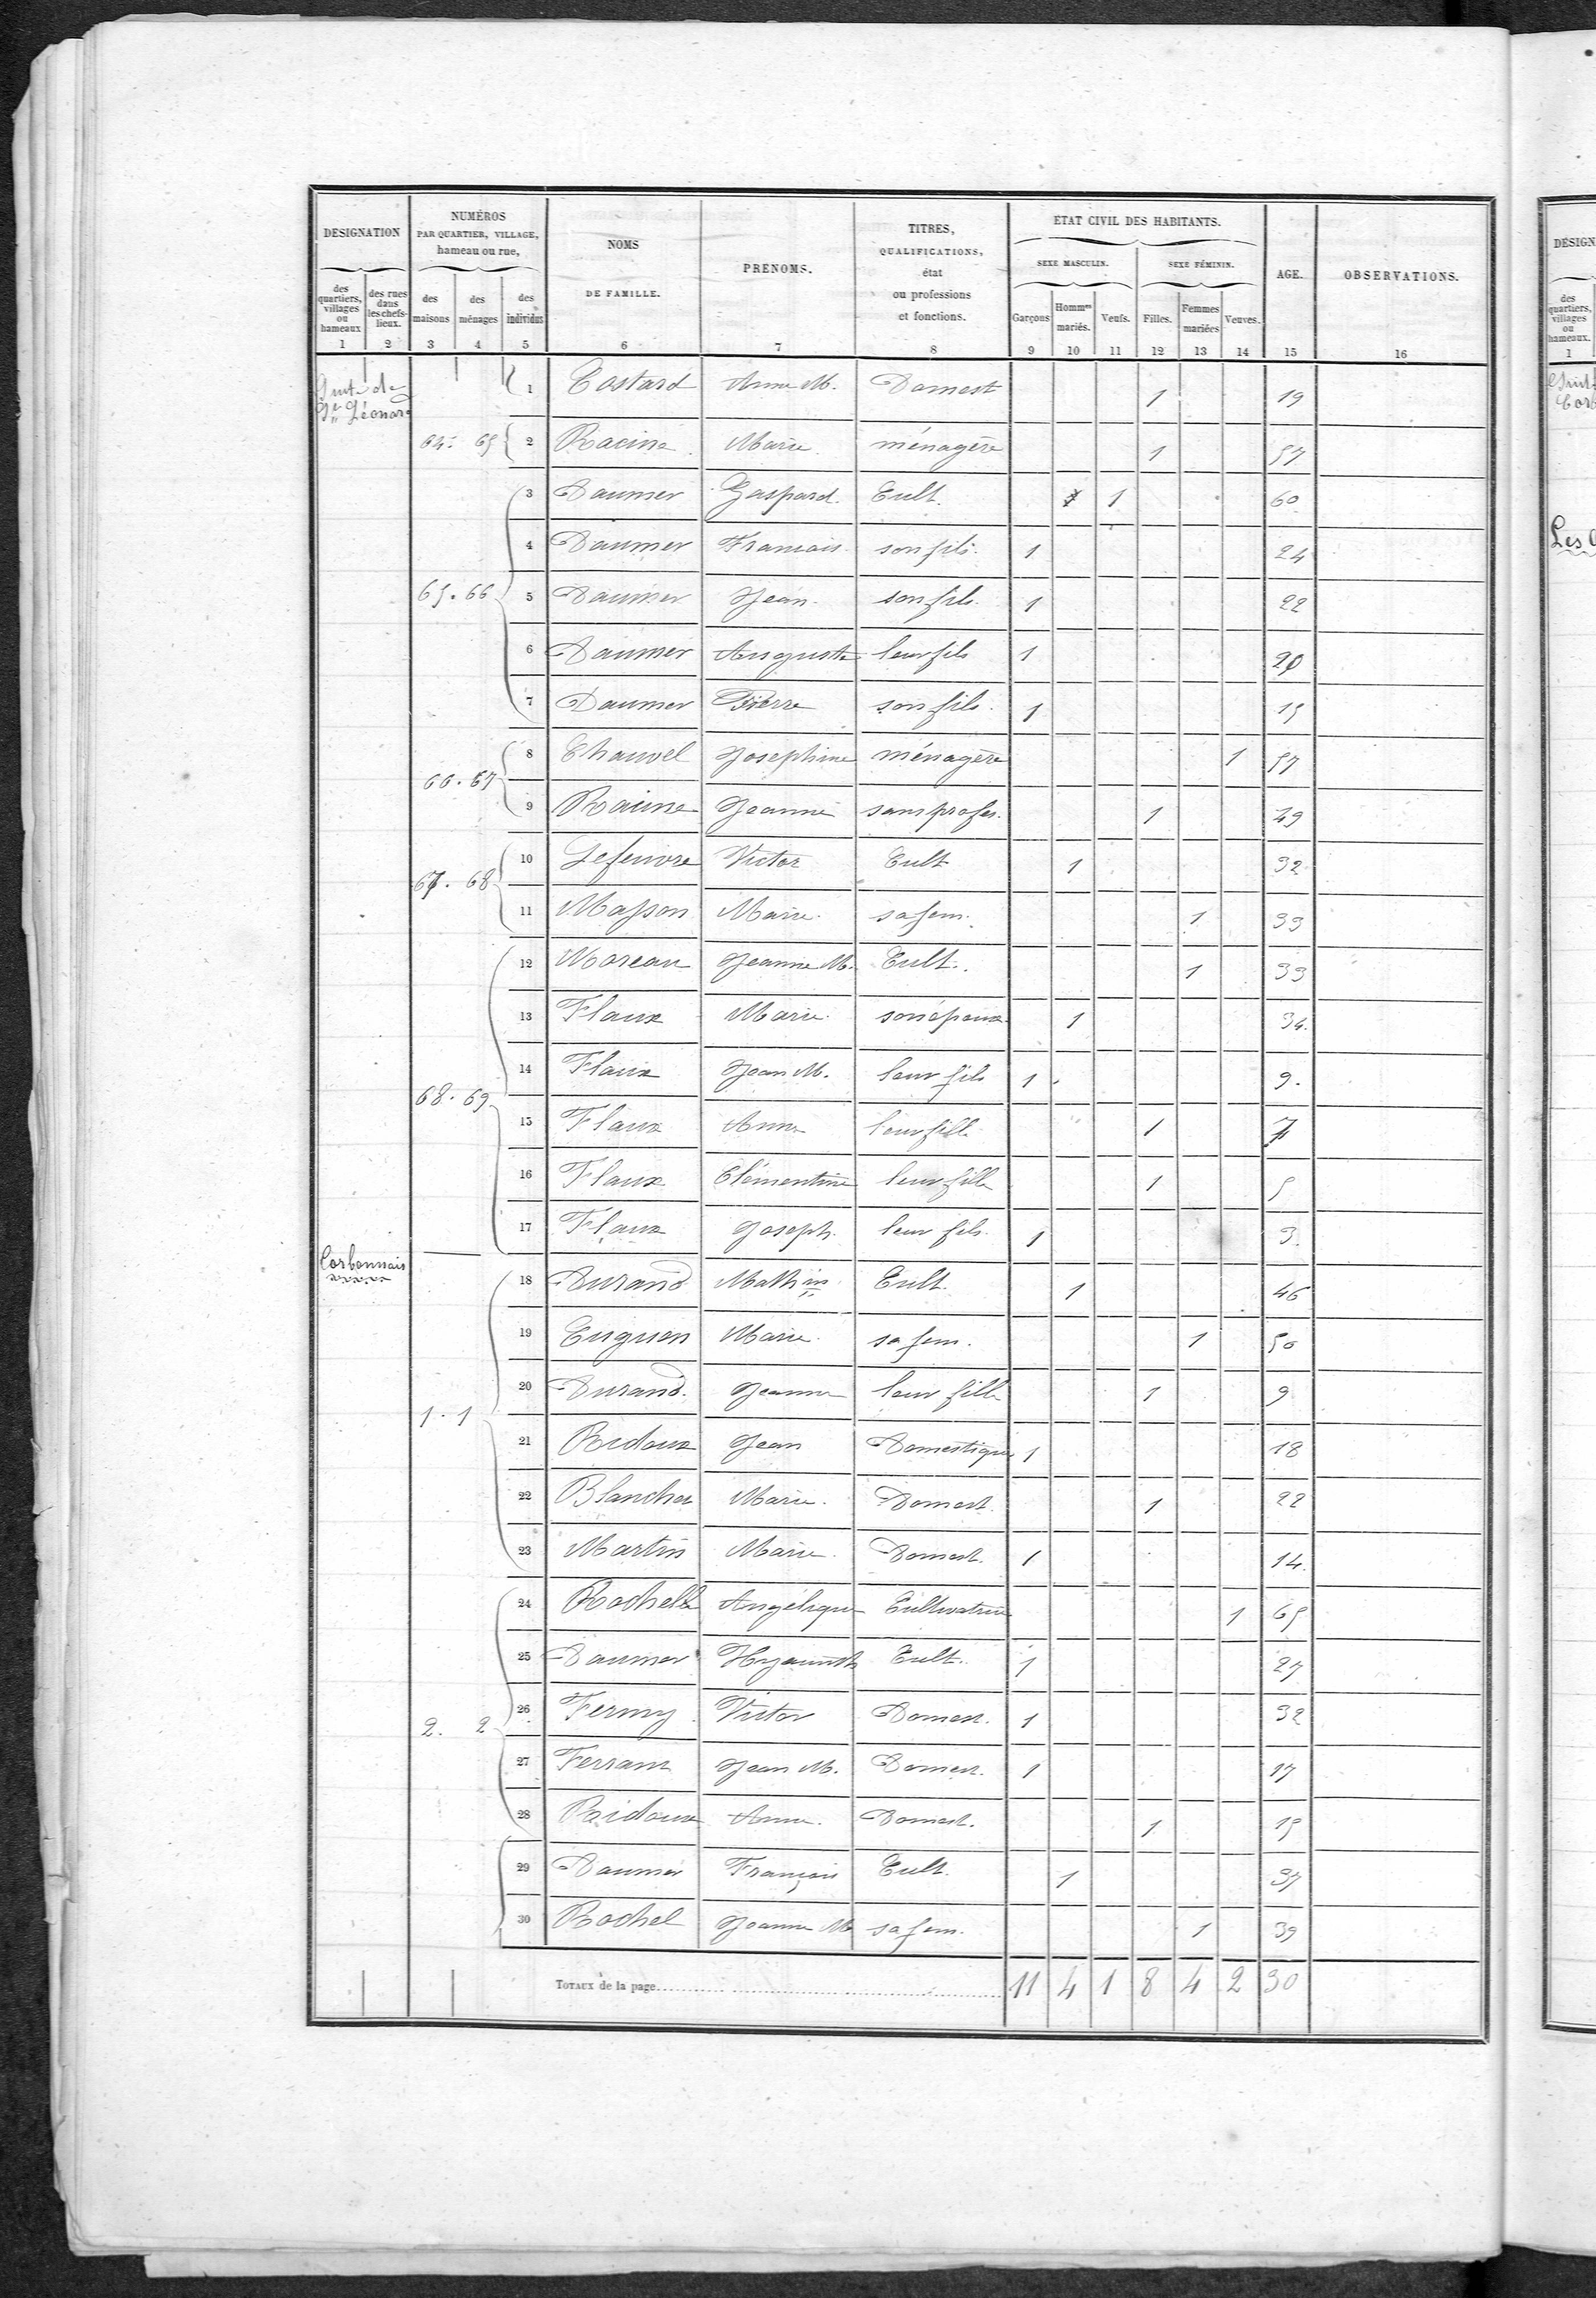 DESIGNATION NUMÉROS PAR QUARTIER, VILLAGE, hameau ou rue, NOMS DE FAMILLE. PRENOMS. TITRES, QUALIFICATIONS, état ou professions et fonctions. ETAT CIVIL DES HABITANTS. AGE. OBSERVATIONS.
SEXE MASCULIN. SEXE FÉMININ.
des quartiers, villages ou hameaux des rues dans les chefs-lieux. des maisons des ménages des individus Garçons Hommes mariés. Veufs. Filles. Femmes mariées Veuves.
1 2 3 4 5 6 7 8 9 10 11 12 13 14 15 16
de St Léonard
1 Costard Anne M. Domest 1 19
64. 65 2 Racine Marie ménagère 1 57
3 Daumer Gaspard Cult. 1 60
4 Daumer Francois son fils 1 24
65. 66 5 Daumer Jean son fils 1 22
6 Daumer Auguste leur fils 1 20
7 Daumer Pierre son fils 1 15
8 Chauvel Josephine ménagère 1 57
66. 67
9 Racine Jeanne sans profes. 1 49
10 Lefeuvre Victor Cult 1 32
67. 68
11 Masson Marie sa fem. 1 33
12 Moreau Jeanne M. Cult. 1 33
13 Flaux Marie son époux 1 34
14 Flaux Jean M. leur fils 1 9
68. 69
15 Flaux Anne leur fille 1 7
16 Flaux Clémentine leur fille 1 5
17 Flaux Joseph leur fils 1 3
Corbonnais
18 Durand Mathin Cult. 1 46
19 Marie sa fem. 1 50
20 Durand Jeanne leur fille 1 9
1. 1
21 Ridoux Jean Domestique 1 18
22 Blanchet Marie Domest. 1 22
23 Martin Marie Domest. 1 14
24 Rochelle Angélique Cultivatrice 1 65
25 Daumer Hyacinth Cult. 1 27
26 Fermy Victor Domest. 1 32
2. 2
27 Jean M. Domest. 1 17
28 Ridoux Anne Domest. 1 15
29 Daumer François Cult. 1 37
30 Rochel Jeanne M sa fem. 1 39
TOTAUX de la page 11 4 1 8 4 2 30
DÉSIGN
des quartiers, villages ou hameaux.
1
Les